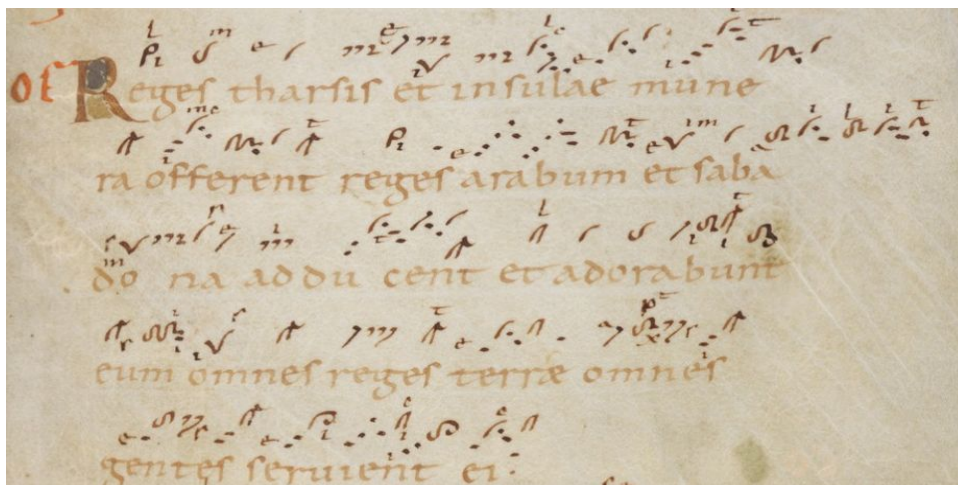 OF Reges tharsis et insulae mune
ra offerent reges arabum et saba
do na addu cent et adorabunt
eum omnes reges terræ omnes
gentes seruient ei.